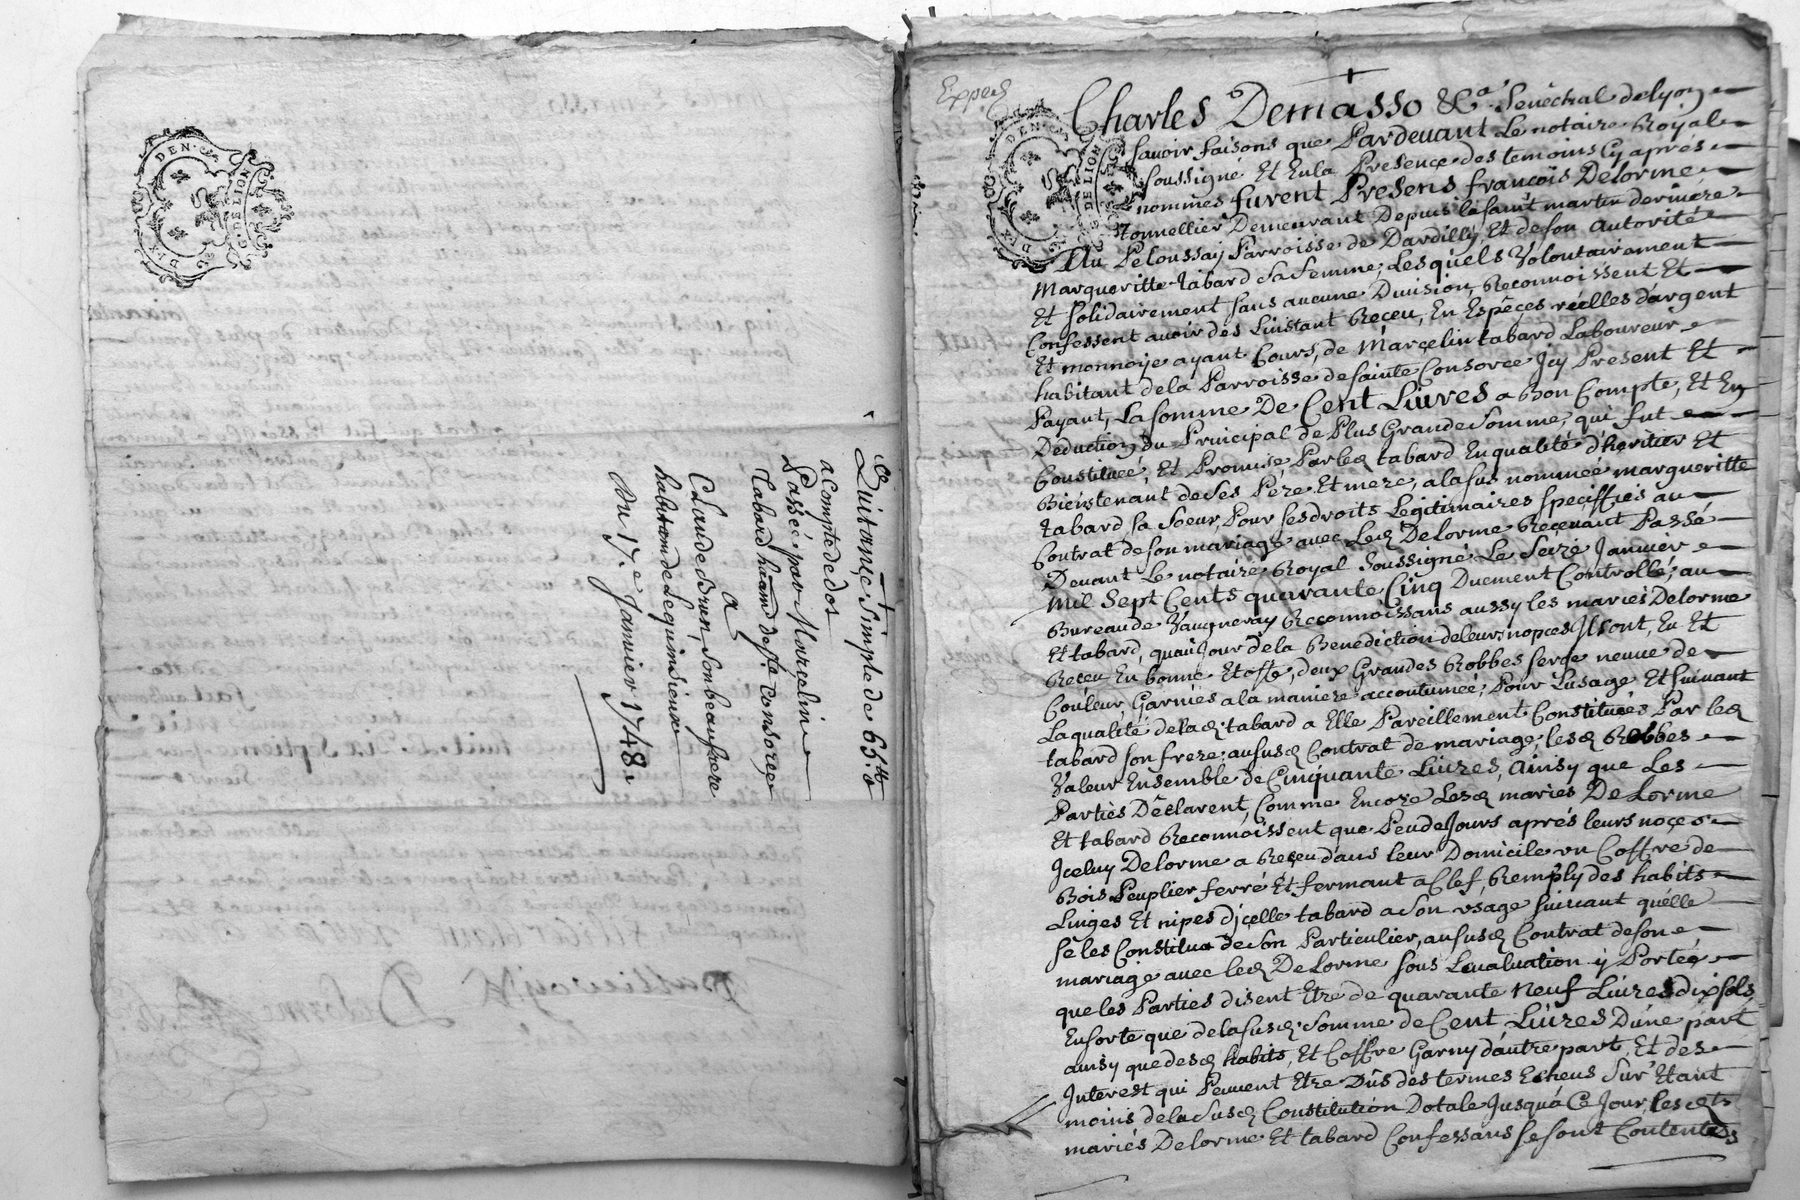 DEN.
DE LION
DEUX
Quitançe Simple de 65.tt
a Compte de dot
Passé par Marçelin
Tabard häant de Ste Consorçe
a
Claude Brun, Son beaufrere
habitant de Lequimsieux
Du 17.e Janvier 1748.
Exped
Charles Demasso &ca. Senéchal de lyon
Savoir faisons que Pardevant Le notaire Royal
Soussigné Et En la Presençe des temoins Cy aprés
nommés furent Presens françois Delorme
Tonnellier Demeurant Depuis la saint martin derniere
Au Peloussay Parroisse de Dardilly, Et de son autorité
Margueritte tabard Sa femme; Lesquels Volontairement
Et solidairement sans aucune Division, Reconnoissent Et
Confessent avoir dés L'instant Reçeu, En Espêçes réelles d'argent
Et monnoye ayant Cours, de Marçelin tabard Laboureur
habitant de la Parroisse de sainte Consorçe Jcy Present Et
Payant, La somme De Cent Livres a Bon Compte, Et En
Deduction du Principal de Plus Grande Somme, qui fut
Constituée, Et Promise Par led tabard En qualité d'heritier Et
Bientenant de Ses Pére Et mere, a la sus nommée margueritte
tabard sa Soeur, Pour ses droits Légitimaires speciffiés au
Contrat de son mariage avec Led Delorme Reçevant Passé
Devant Le notaire Royal Soussigné Le Seize Janvier
Mil Sept Cents quarante Cinq Duement Controllé, au
Bureau de Vaugneray Reconnoissans aussy les mariés Delorme
Et tabard, qu'au Jour de la Benediction de leurs nopçes Jls ont, Eu Et
Reçeu En bonne Etoffe, deux Grandes Robbes serge neuve de
Couleur, Garnies a la maniere accoutumée, Pour L'usage Et suivant
La qualité de lad tabard a Elle Pareillement Constituées Par led
tabard son frere, ausud Contrat de mariage, lesd Robbes
Valeur Ensemble de Cinquante Livres, Ainsy que Les
Parties Déclarent, Comme Encore Lesd mariés Delorme
Et tabard Reconnoissent que Peu de Jours aprés leurs noçes
Jceluy Delorme a Reçeu dans leur Domicile un Coffre de
Bois Peuplier ferré Et fermant a Clef, Remply des habits
Linges Et nipes d'jçelle tabard a Son usage suivant quélle
sê les Constitua de Son Particulier, ausud Contrat de son
mariage avec led Delorme sous L'evaluation y Portée
que les Parties disent Etre de quarante Neuf Livres dix sols,
Ensorte que de la susd. Somme de Cent Livres D'une part
ainsy que desd habits, Et Coffre Garny d'autre part, Et des
Jnterest qui Peuvent Etre Dûs des termes Echeus Sur Etant
moins de la Susd Constitution Dotale Jusqu'a Ce Jour, lesd
mariés Delorme Et tabard Confessans se sont Contentés